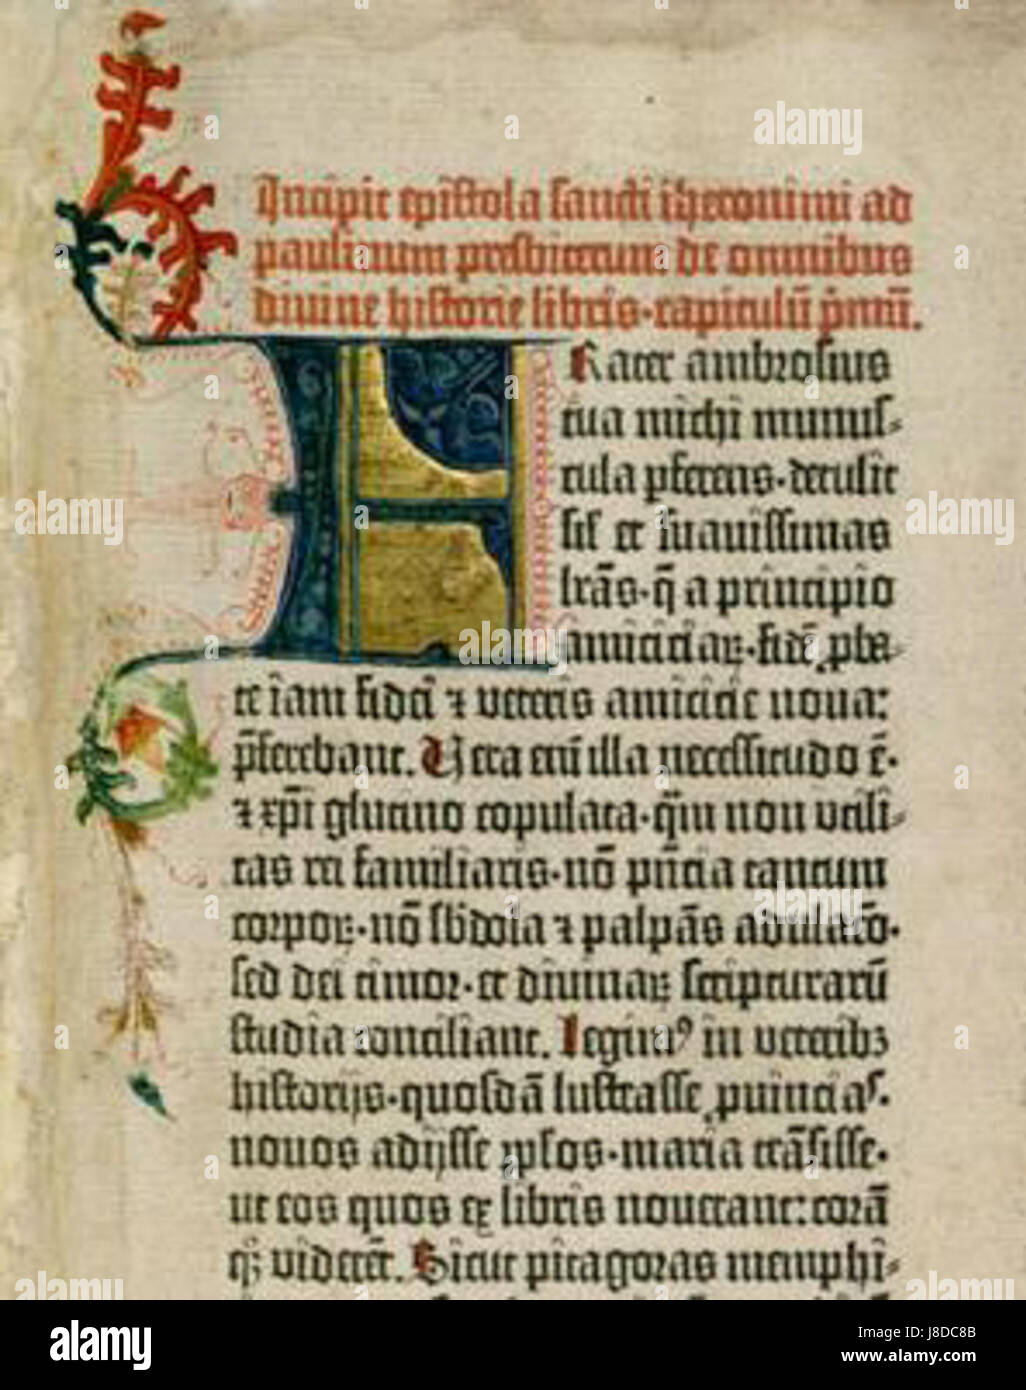 Incipit epistola sancti iheronimi ad
paulinum presbiterum de omnibus
divine historie libris·capitulū p̄mū.
FRater ambrosius
tua michi munus-
cula ꝑferens·detulit
sił et suavissimas
lrās·q̄ a principio
amiciciaꝝ·fidē ꝓba-
te iam fidei ⁊ veteris amicicie nova:
p̄ferebant. Vera eni̅ illa necessitudo ē·
⁊ xp̄i glutino copulata·q̄m non utili-
tas rei familiaris·nō pn̄cia tantum
corpoꝝ·nō sb̄dola ⁊ palpās adulacō·
sed dei timor·et divinaꝝ scripturarū
studia conciliant. Legimꝰ in veteribꝫ
historijs·quosdā lustrasse ꝓvincias·
novos adijsse ꝓplos·maria trāsisse·
ut eos quos ex libris noverant: corā
qꝫ viderēt. Sicut pitagoras memphi-
alamy
Image ID: J8DC8B
www.alamy.com